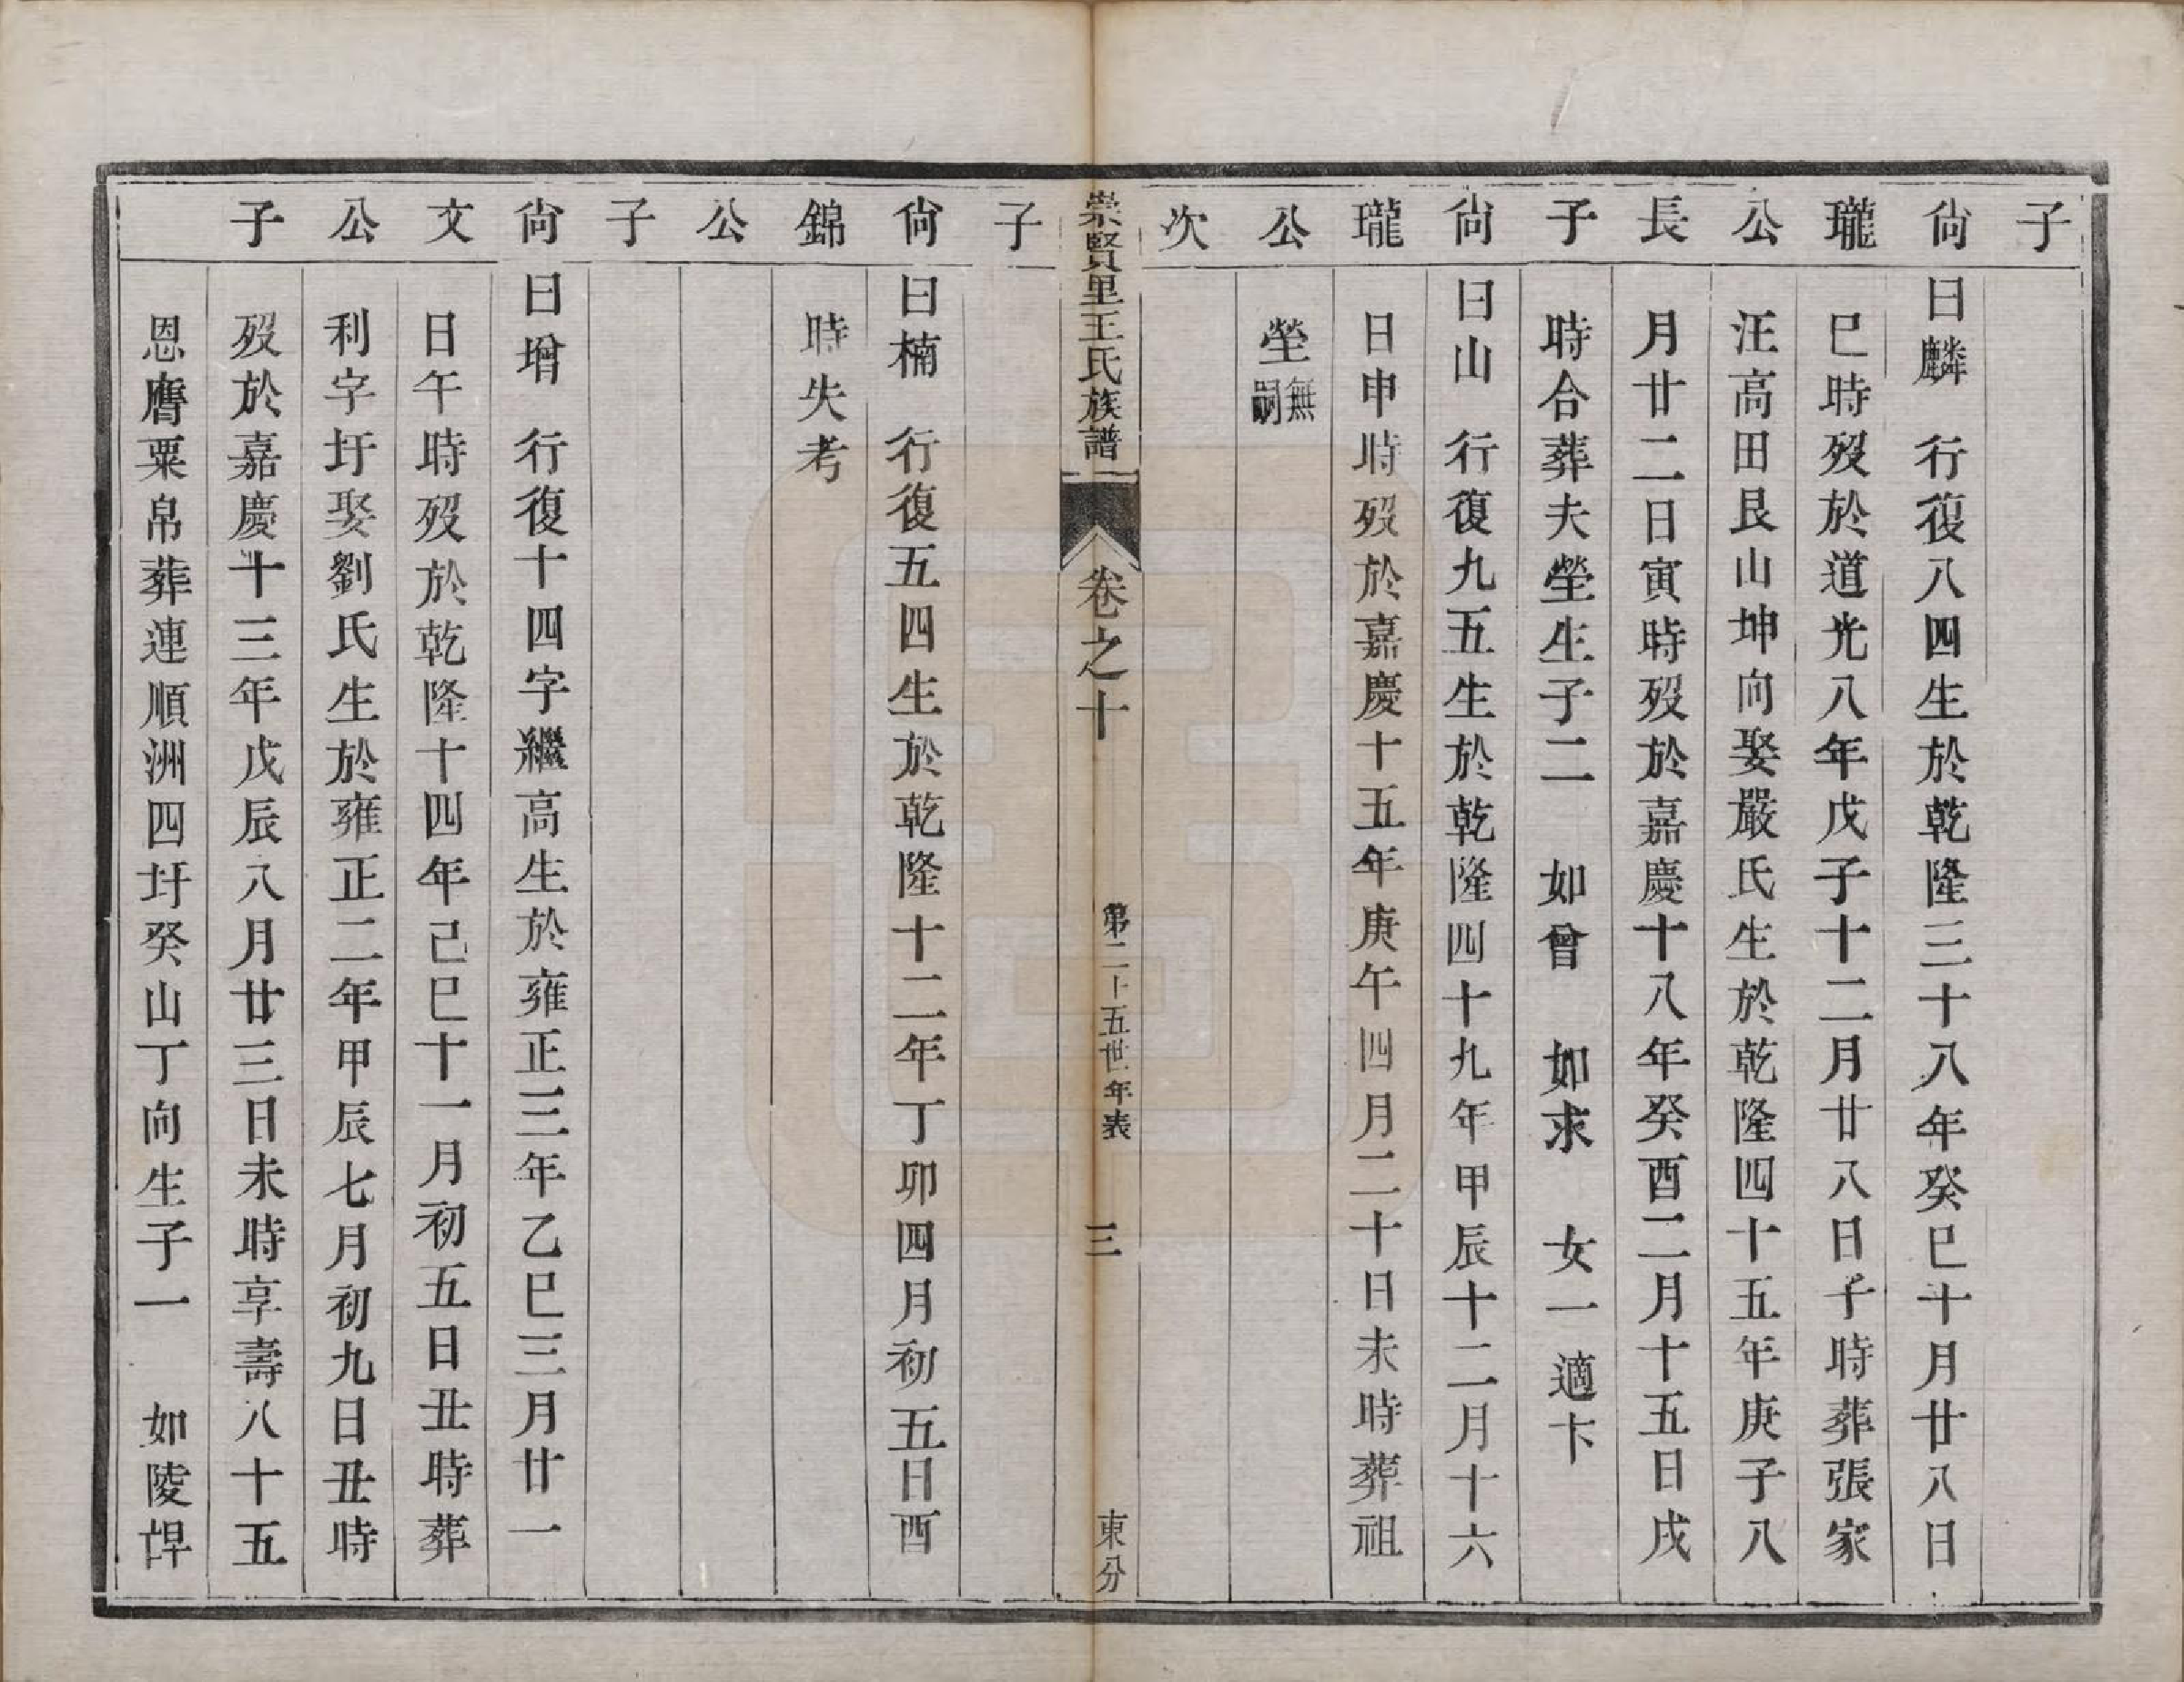 子
尙 曰麟 行復八四生於乾隆三十八年癸巳十月廿八日
瓏 巳時歿於道光八年戊子十二月廿八日子時葬張家
公 汪高田艮山坤向娶嚴氏生於乾隆四十五年庚子八
長 月廿二日寅時歿於嘉慶十八年癸酉二月十五日戌
子 時合葬夫塋生子二 如曾 如求 女一適卞
尙 曰山 行復九五生於乾隆四十九年甲辰十二月十六
瓏 日申時歿於嘉慶十五年庚午四月二十日未時葬祖
公 塋無嗣
次
崇賢里王氏族譜 卷之十 第二十五世年表 三 東分
子
尙 曰楠 行復五四生於乾隆十二年丁卯四月初五日酉
錦 時失考
公
子
尙 曰增 行復十四字繼高生於雍正三年乙巳三月廿一
文 日午時歿於乾隆十四年己巳十一月初五日丑時葬
公 利字圩娶劉氏生於雍正二年甲辰七月初九日丑時
子 歿於嘉慶十三年戊辰八月廿三日未時享壽八十五
恩膺粟帛葬連順洲四圩癸山丁向生子一 如陵